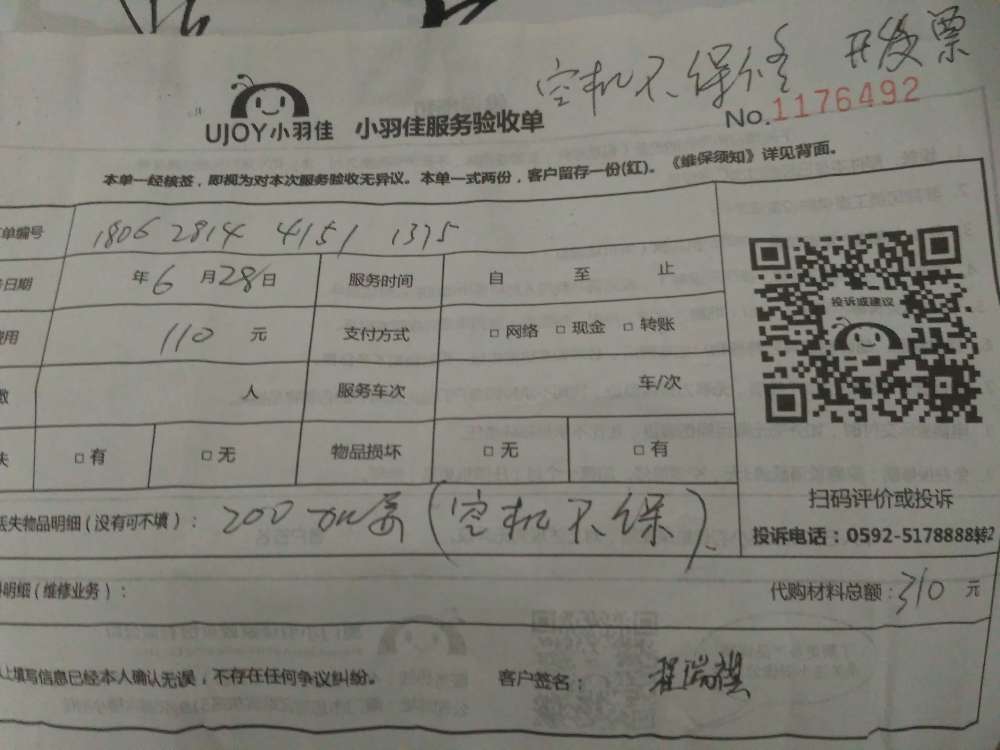 空机不保修 开发票
UJOY小羽佳 小羽佳服务验收单
No.1176492
本单一经核签，即视为对本次服务验收无异议。本单一式两份，客户留存一份(红)。《维保须知》详见背面。
单编号 1806 2814 4151 1375
日期 年6月28日 服务时间 自 至 止
用 110 元 支付方式 □ 网络 □ 现金 □ 转账
数 人 服务车次 车/次
失 □ 有 □ 无 物品损坏 □ 无 □ 有
投诉或建议
扫码评价或投诉
投诉电话：0592-5178888转2
丢失物品明细（没有可不填）： 200 (空机不保).
明细（维修业务）： 代购材料总额：310 元
以上填写信息已经本人确认无误，不存在任何争议纠纷。 客户签名： 程瑞祺